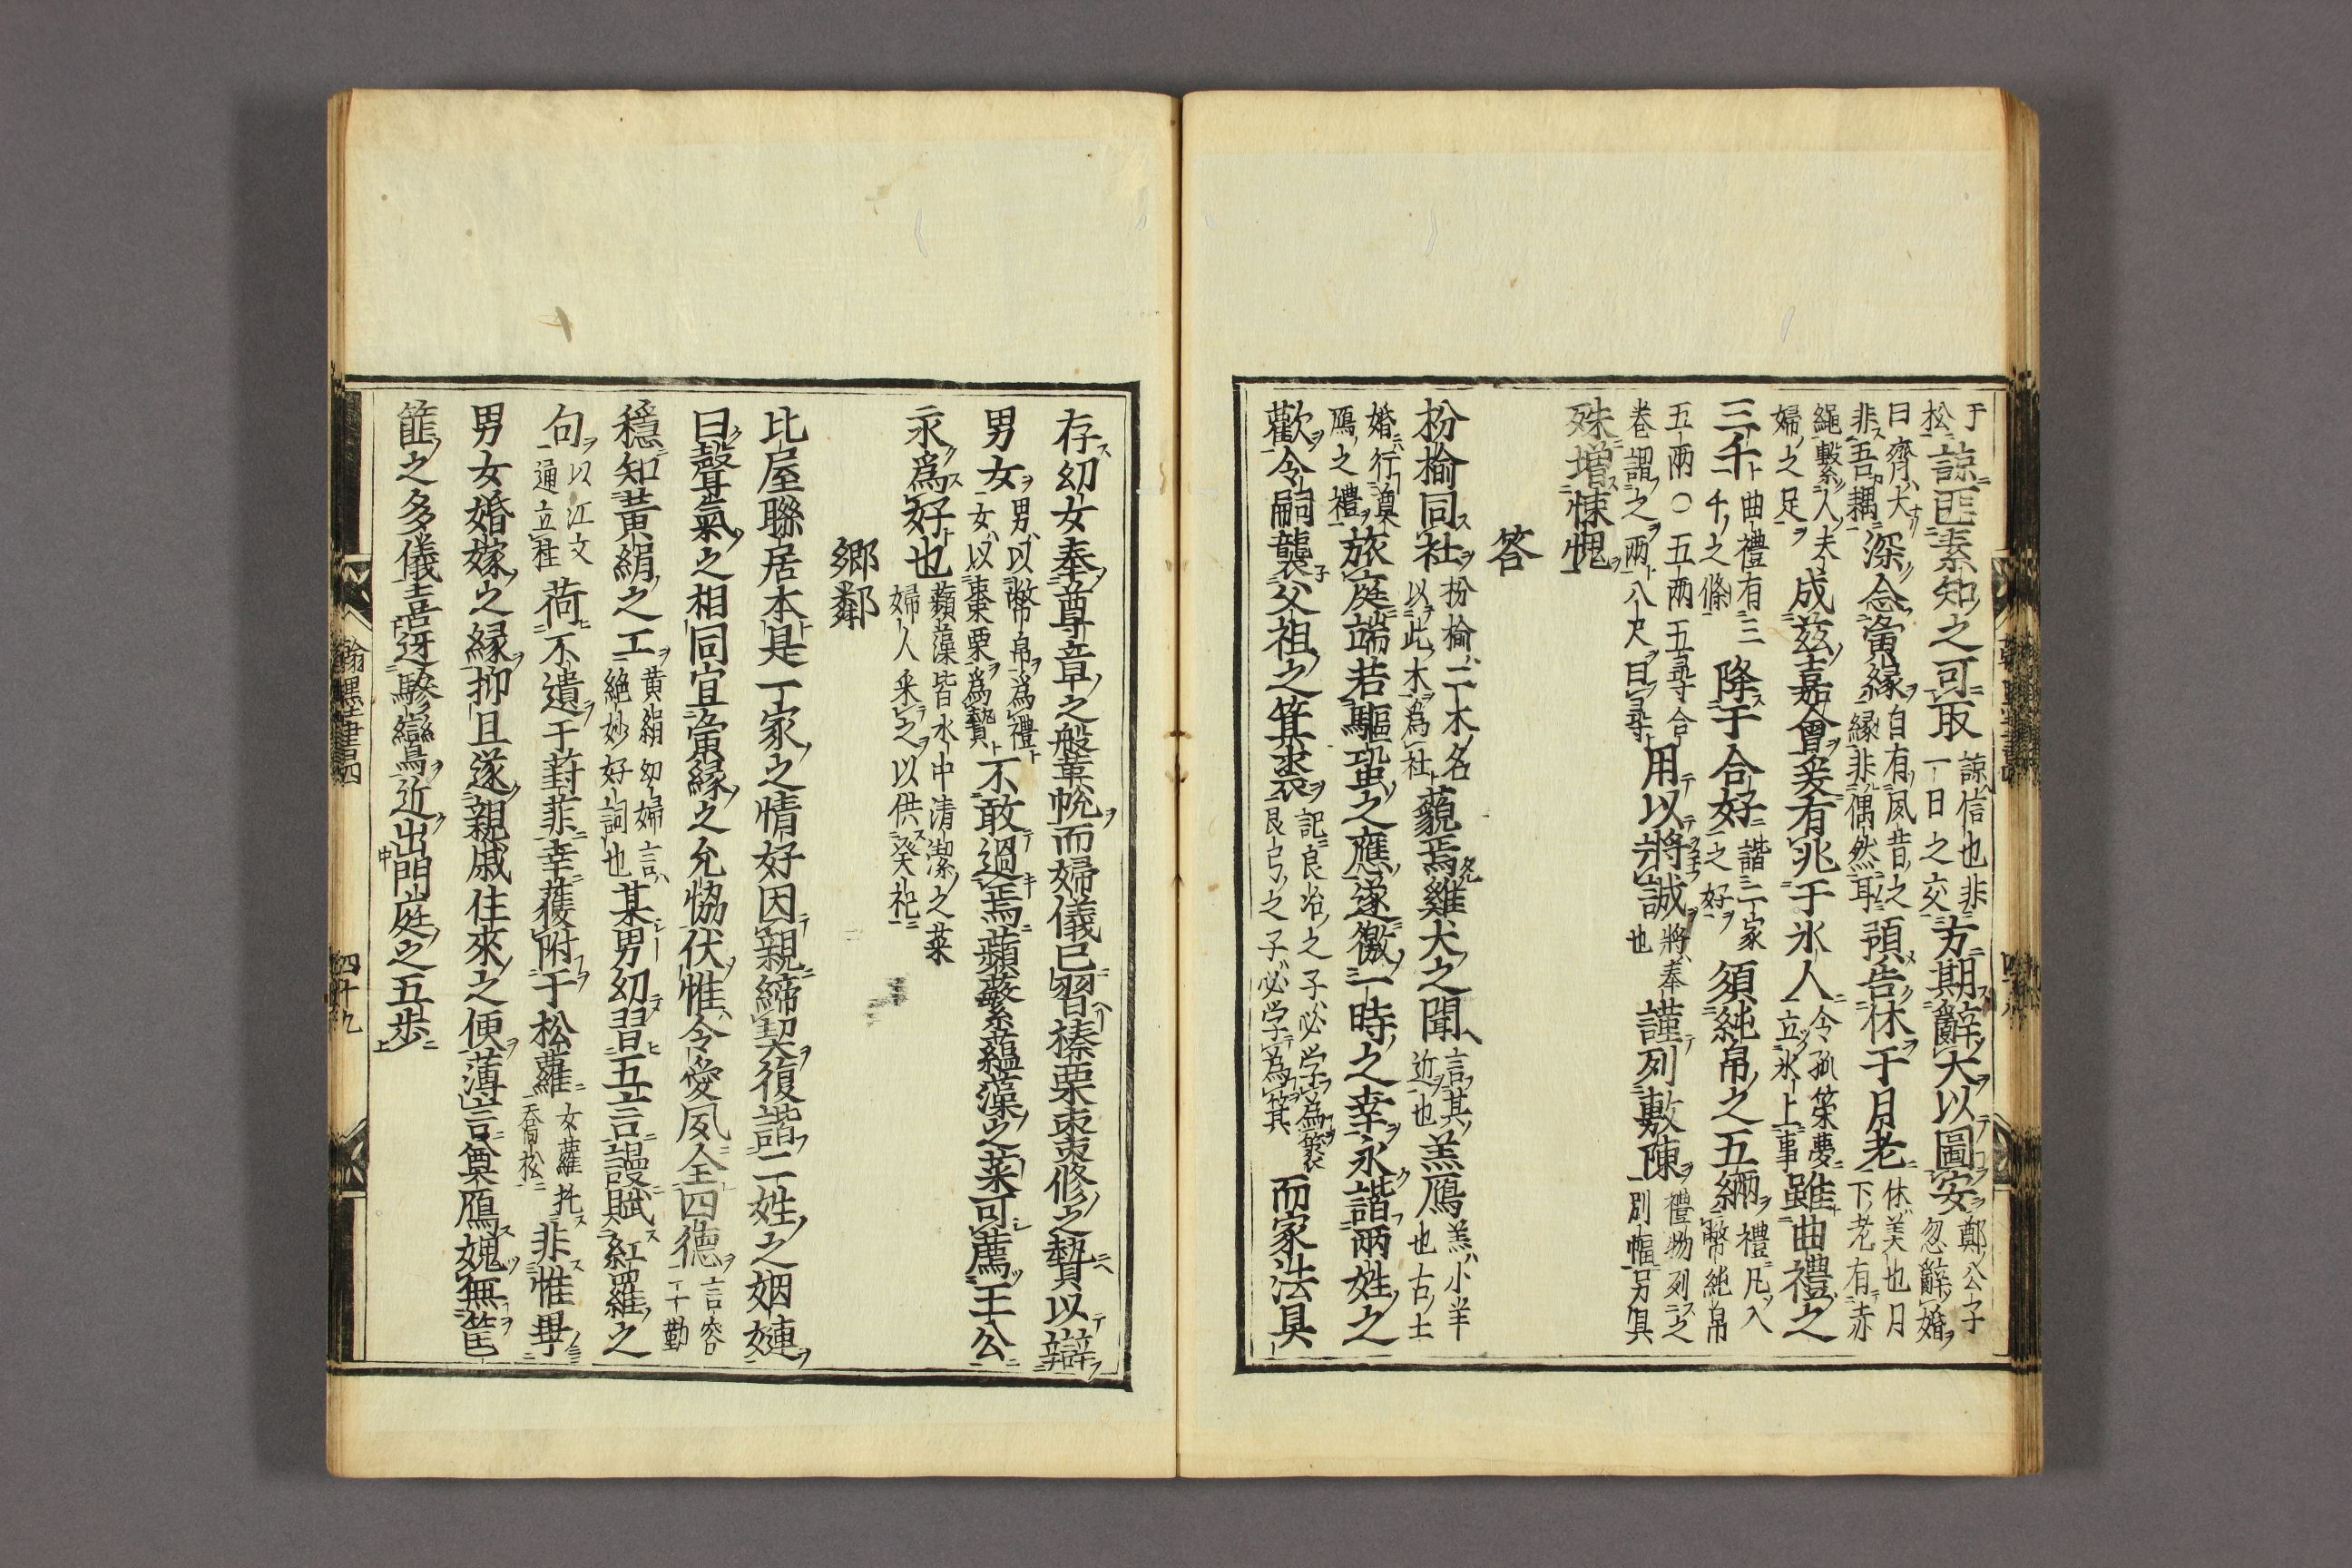 于松諒匪素知之可取諒信也非一日之交方期辭大以圖安鄭公子忽辭婚
曰齊大非吾耦深念夤緣自有夙昔之縁非偶然耳預告休于月老休美也月下老有赤
繩繫人夫婦之足成茲嘉會爰有兆于氷人令孤策夢立氷上事雖曲禮之
三千曲禮有三千之條降于合好諧二家之好須純帛之五緉禮凡入幣純帛
五兩○五兩五尋合卷謂之兩八尺曰尋用以將誠將奉也謹列敷陳禮物列之別幅另具
殊増悚愧
答
枌榆同社枌榆二木名以此木為社藐焉雞犬之聞言其近也羔鴈羔小羊也古士
婚行奠鴈之禮旅庭端若驅蛩之應遂徼一時之幸永諧兩姓之
歡令嗣襲父祖之箕裘記良冶之子必学為裘良弓之子必学為箕而家法具
存幼女奉尊章之鞶帨而婦儀已習榛栗棗修之贄以辯
男女男以幣帛為禮女以棗栗為贄不敢過焉蘋蘩薀藻之菜可薦王公
永為好也蘋藻皆水中清潔之菜婦人采之以供祭祀
鄉鄰
比屋聯居本是一家之情好因親締契復諧二姓之姻㜕
曰聲氣之相同宜夤緣之允恊伏惟令愛夙全四德言容工勤
穩知黃絹之工黄絹幼婦言絶妙好詞也某男幼習五言謾賦紅羅之
句以江文通立社荷不遺于葑菲幸獲附于松蘿女蘿托吞宿松非惟畢
男女婚嫁之緣抑且遂親戚住來之便薄言奠鴈媿無筐
篚之多儀喜迓驂鸞近出門庭之五步
翰墨書四
四十九